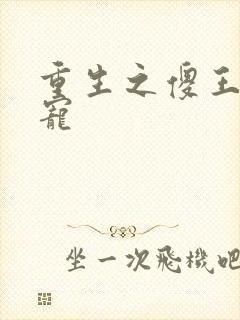 重生之傻王
寵
坐一次飛機吧